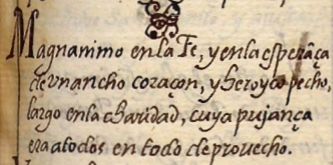 Magnanimo en la Fe, y en la esperãça
de vn ancho coraçon, y heroyco pecho,
largo en la charidad, cuya pujança
era a todos en todo de prouecho.